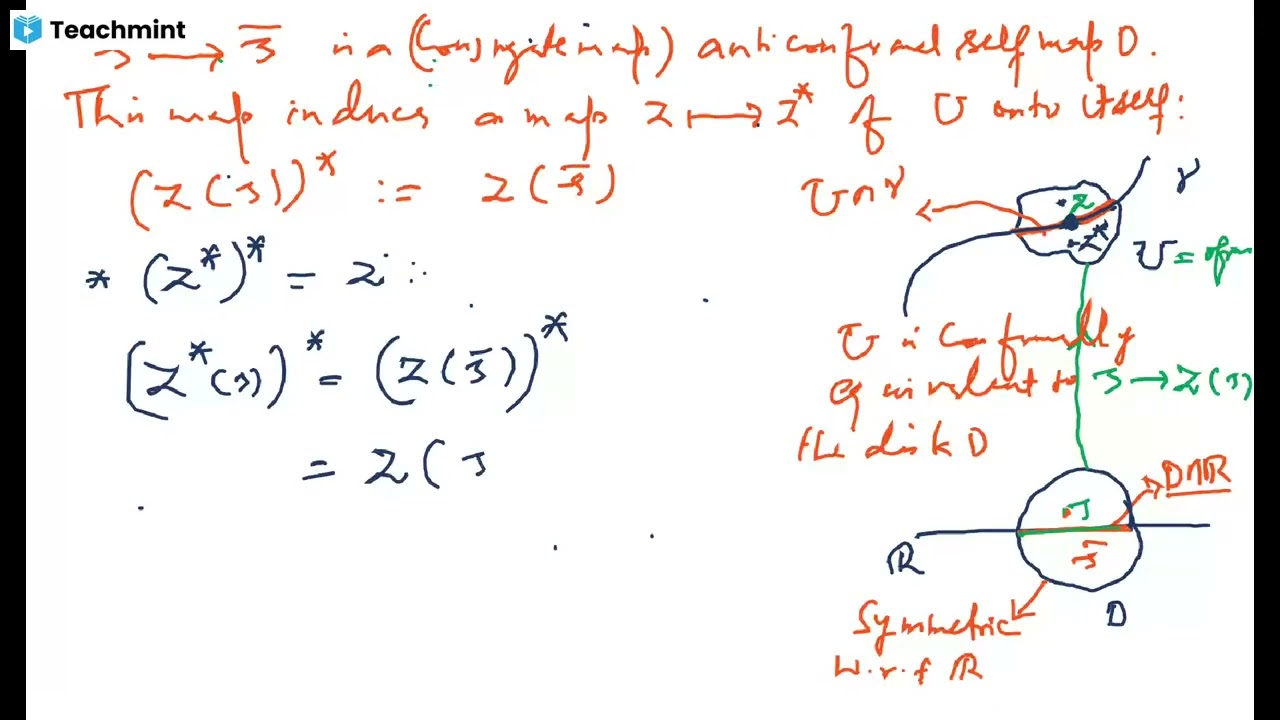 Teachmint
ζ → ζ̄ is a (Conjugate map) anti conformal self map D.
This map induces a map z ↦ z* of U onto itself:
(z(ζ))* := z(ζ̄)
* (z*)* = z ∵
(z*(ζ))* = (z(ζ̄))*
= z(ζ
U∩γ
γ
z
z*
U = open
U is conformally
equivalent to
the disk D
ζ → z(ζ)
D∩ℝ
ζ
ζ̄
ℝ
D
Symmetric
w.r.t ℝ